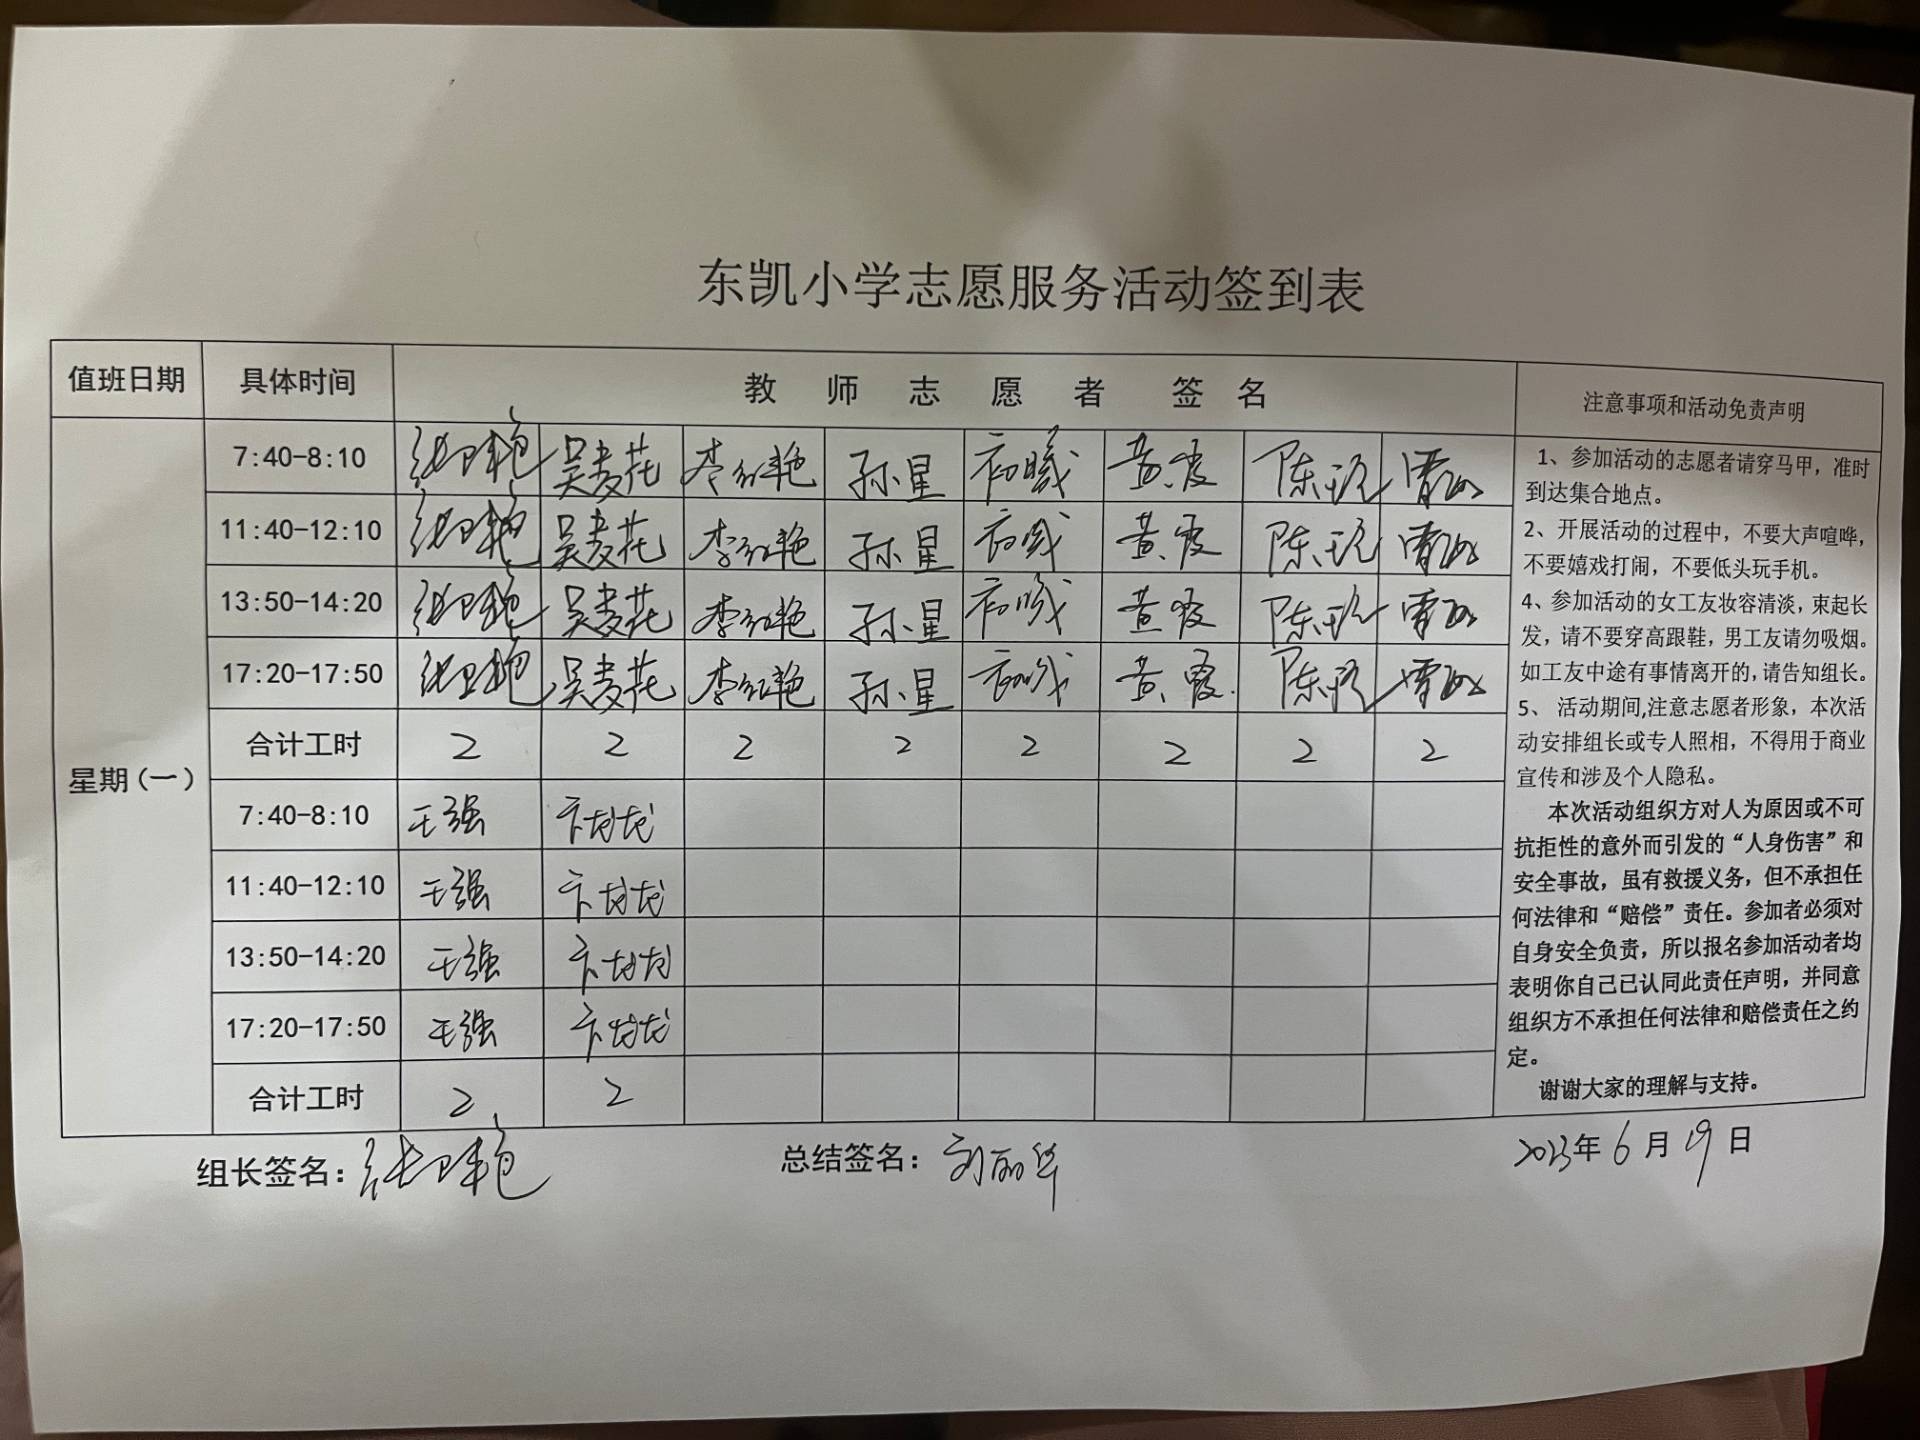 东凯小学志愿服务活动签到表
值班日期 具体时间 教师志愿者签名 注意事项和活动免责声明
星期(一)
7:40-8:10 张卫艳 吴麦花 李红艳 孙星 初曦 黄霞 陈玩
11:40-12:10 张卫艳 吴麦花 李红艳 孙星 初曦 黄霞 陈玩
13:50-14:20 张卫艳 吴麦花 李红艳 孙星 初曦 黄霞 陈玩
17:20-17:50 张卫艳 吴麦花 李红艳 孙星 初曦 黄霞 陈玩
合计工时 2 2 2 2 2 2 2 2
7:40-8:10 王强 卞龙龙
11:40-12:10 王强 卞龙龙
13:50-14:20 王强 卞龙龙
17:20-17:50 王强 卞龙龙
合计工时 2 2
1、参加活动的志愿者请穿马甲，准时
到达集合地点。
2、开展活动的过程中，不要大声喧哗，
不要嬉戏打闹，不要低头玩手机。
4、参加活动的女工友妆容清淡，束起长
发，请不要穿高跟鞋，男工友请勿吸烟。
如工友中途有事情离开的，请告知组长。
5、 活动期间,注意志愿者形象，本次活
动安排组长或专人照相，不得用于商业
宣传和涉及个人隐私。
本次活动组织方对人为原因或不可
抗拒性的意外而引发的“人身伤害”和
安全事故，虽有救援义务，但不承担任
何法律和“赔偿”责任。参加者必须对
自身安全负责，所以报名参加活动者均
表明你自己已认同此责任声明，并同意
组织方不承担任何法律和赔偿责任之约
定。
谢谢大家的理解与支持。
组长签名：张卫艳 总结签名：刘丽华 2023年6月19日